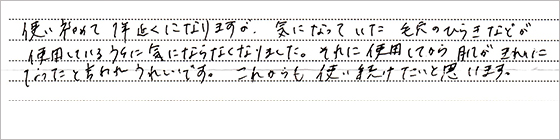 使い初めて1年近くになりますが、気になっていた毛穴のひらきなどが
使用しているうちに気にならなくなりました。それに使用してから肌がきれいに
なったと言われうれしいです。これからも使い続けたいと思います。